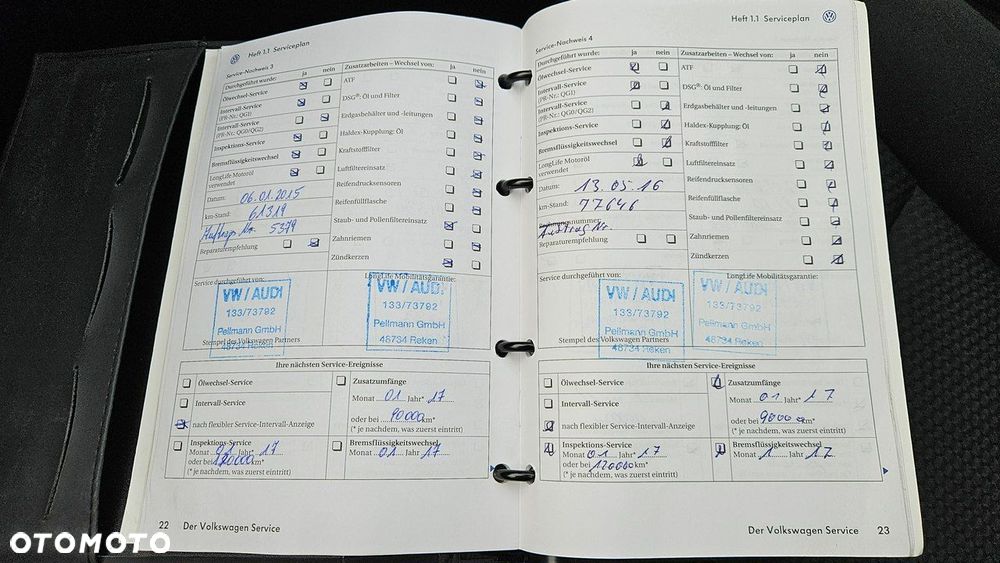 Heft 1.1 Serviceplan
Service-Nachweis 3
Durchgeführt wurde: ja nein
Ölwechsel-Service
Intervall-Service
(PR-Nr.: QG1)
Intervall-Service
(PR-Nr.: QG0/QG2)
Inspektions-Service
Bremsflüssigkeitswechsel
LongLife Motoröl
verwendet
Datum: 06.01.2015
km-Stand: 61319
5379
Reparaturempfehlung
Zusatzarbeiten – Wechsel von: ja nein
ATF
DSG®: Öl und Filter
Erdgasbehälter und -leitungen
Haldex-Kupplung: Öl
Kraftstofffilter
Luftfiltereinsatz
Reifendrucksensoren
Reifenfüllflasche
Staub- und Pollenfiltereinsatz
Zahnriemen
Zündkerzen
Service durchgeführt von:
VW / AUDI
133/73792
Pellmann GmbH
48734 Reken
Stempel des Volkswagen Partners
LongLife Mobilitätsgarantie:
VW / AUDI
133/73792
Pellmann GmbH
48734 Reken
Ihre nächsten Service-Ereignisse
Ölwechsel-Service
Intervall-Service
nach flexibler Service-Intervall-Anzeige
Inspektions-Service
Monat 01 Jahr* 17
oder bei 120000 km*
(* je nachdem, was zuerst eintritt)
Zusatzumfänge
Monat 01 Jahr* 17
oder bei 90000 km*
(* je nachdem, was zuerst eintritt)
Bremsflüssigkeitswechsel
Monat 01 Jahr 17
22 Der Volkswagen Service
Heft 1.1 Serviceplan
Service-Nachweis 4
Durchgeführt wurde: ja nein
Ölwechsel-Service
Intervall-Service
(PR-Nr.: QG1)
Intervall-Service
(PR-Nr.: QG0/QG2)
Inspektions-Service
Bremsflüssigkeitswechsel
LongLife Motoröl
verwendet
Datum: 13.05.16
km-Stand: 77646
Auftrag Nr.
Reparaturempfehlung
Zusatzarbeiten – Wechsel von: ja nein
ATF
DSG®: Öl und Filter
Erdgasbehälter und -leitungen
Haldex-Kupplung: Öl
Kraftstofffilter
Luftfiltereinsatz
Reifendrucksensoren
Reifenfüllflasche
Staub- und Pollenfiltereinsatz
Zahnriemen
Zündkerzen
Service durchgeführt von:
VW / AUDI
133/73792
Pellmann GmbH
48734 Reken
Stempel des Volkswagen Partners
LongLife Mobilitätsgarantie:
VW / AUDI
133/73792
Pellmann GmbH
48734 Reken
Ihre nächsten Service-Ereignisse
Ölwechsel-Service
Intervall-Service
nach flexibler Service-Intervall-Anzeige
Inspektions-Service
Monat 01 Jahr* 17
oder bei 120000 km*
(* je nachdem, was zuerst eintritt)
Zusatzumfänge
Monat 01 Jahr* 17
oder bei 90000 km*
(* je nachdem, was zuerst eintritt)
Bremsflüssigkeitswechsel
Monat 1 Jahr 17
Der Volkswagen Service 23
OTOMOTO